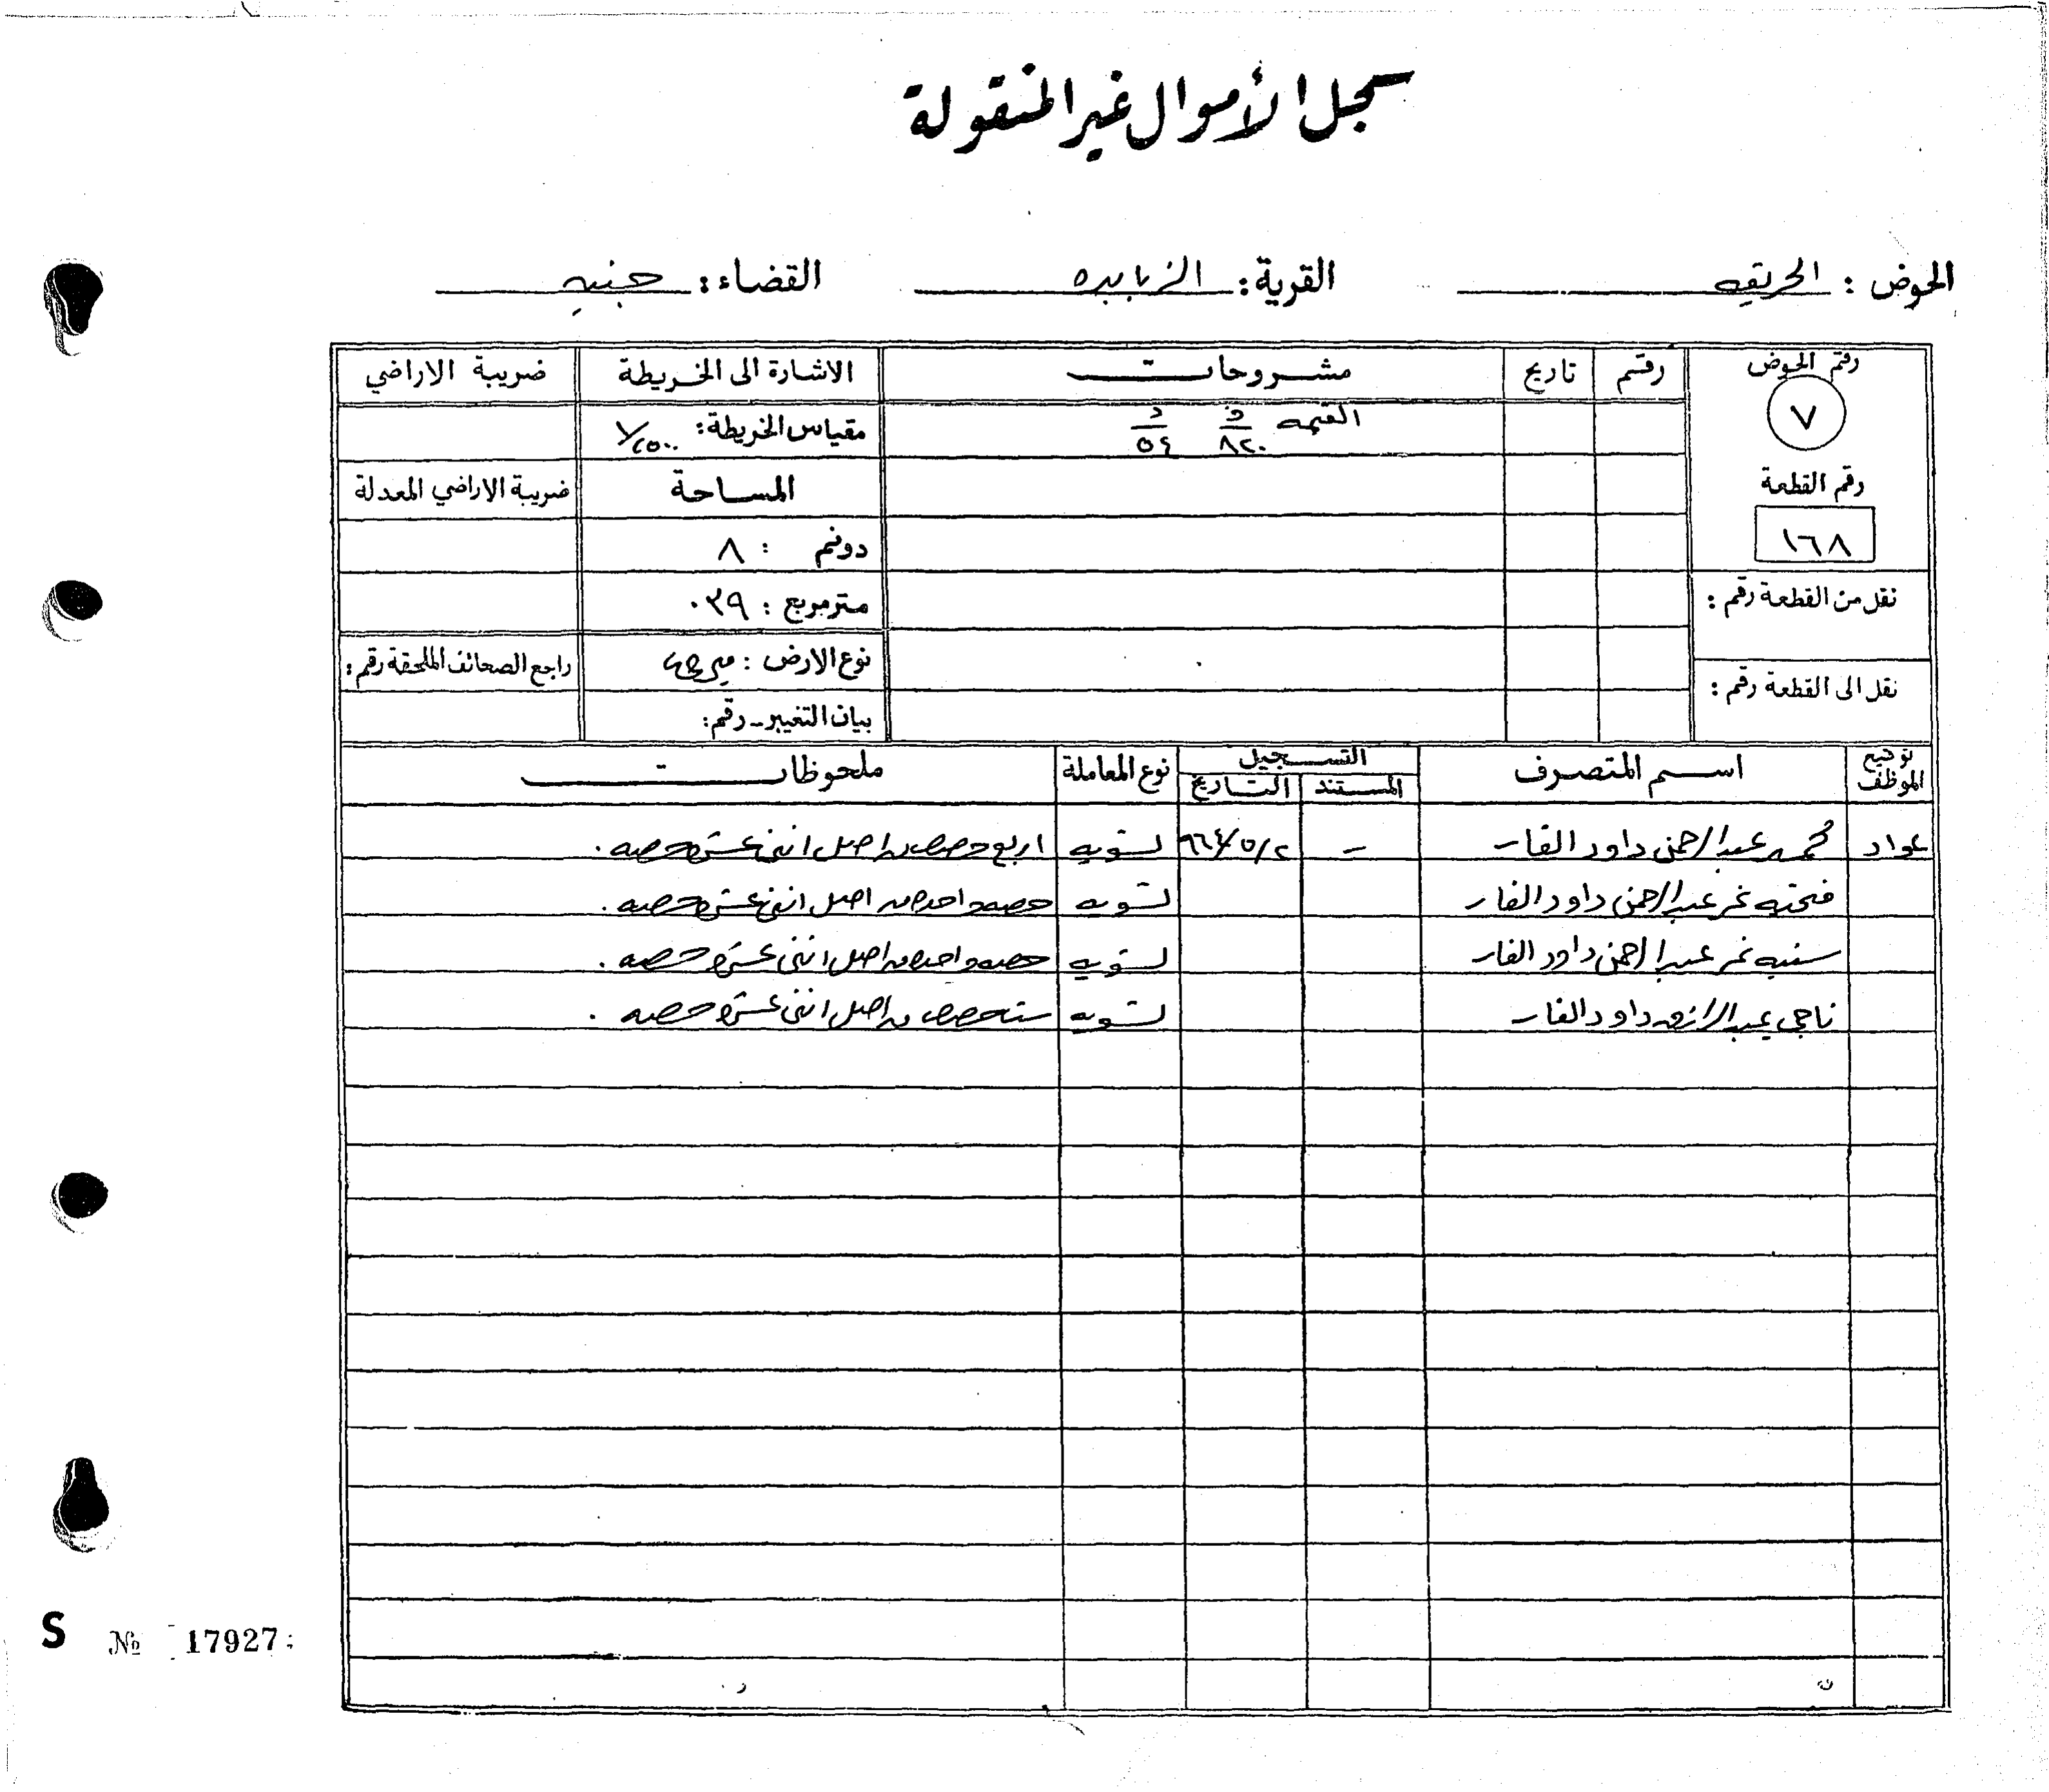 سجل الأموال غير المنقولة
الحوض : الحريقه القرية : الزبابده القضاء : جنين
رقم الحوض رقم تاريخ مشروحات الاشارة الى الخريطة ضريبة الاراضي
٧ القيمه ف ٨٢٠ د ٥٤ مقياس الخريطة : ١/٢٥٠٠
رقم القطعة المساحة ضريبة الاراضي المعدلة
١٦٨ دونم : ٨
نقل من القطعة رقم : متر مربع : ٠٣٩
نوع الارض : ميري راجع الصحائف الملحقة رقم :
نقل الى القطعة رقم : بيان التغيير - رقم :
توقيع الموظف اسم المتصرف التسجيل نوع المعاملة ملحوظات
المستند التاريخ
عواد محمد عبد الرحمن داود الفار - ٩٦٤/٥/٢ تسويه اربع حصص من اصل اثني عشرة حصه .
فتحيه نمر عبد الرحمن داود الفار تسويه حصه واحده من اصل اثني عشرة حصه .
سنيه نمر عبد الرحمن داود الفار تسويه حصه واحده من اصل اثني عشرة حصه .
ناجي عبد الرازق داود الفار تسويه ستة حصص من اصل اثني عشرة حصه .
S № 17927